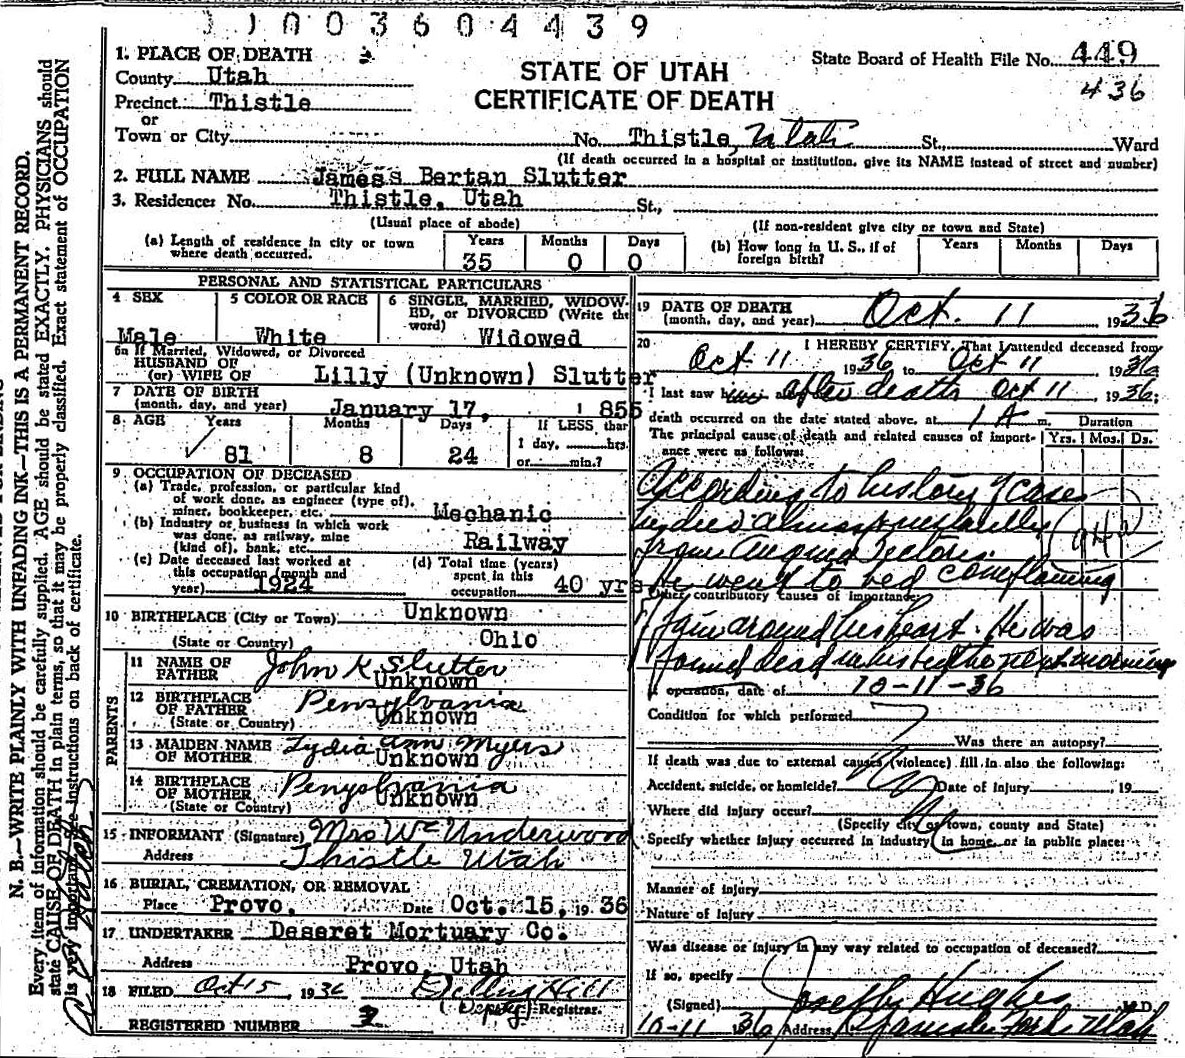 1003604439
1. PLACE OF DEATH
County Utah
Precinct Thistle
or
Town or City
STATE OF UTAH
CERTIFICATE OF DEATH
State Board of Health File No. 449
436
No. Thistle, Utah St., Ward
(If death occurred in a hospital or institution, give its NAME instead of street and number)
2. FULL NAME Jamess Bertan Slutter
3. Residence: No. Thistle, Utah St.,
(Usual place of abode) (If non-resident give city or town and State)
(a) Length of residence in city or town where death occurred. Years 35 Months 0 Days 0
(b) How long in U. S., if of foreign birth? Years Months Days
PERSONAL AND STATISTICAL PARTICULARS
4 SEX Male
5 COLOR OR RACE White
6 SINGLE, MARRIED, WIDOWED, or DIVORCED (Write the word) Widowed
6a If Married, Widowed, or Divorced
HUSBAND OF
(or) WIFE OF Lilly (Unknown) Slutter
7 DATE OF BIRTH
(month, day, and year) January 17, 1855
8 AGE Years 81 Months 8 Days 24
If LESS than
1 day, hrs.
or min.?
9 OCCUPATION OF DECEASED
(a) Trade, profession, or particular kind
of work done, as engineer (type of),
miner, bookkeeper, etc. Mechanic
(b) Industry or business in which work
was done, as railway, mine
(kind of), bank, etc. Railway
(c) Date deceased last worked at
this occupation (month and
year) 1924
(d) Total time (years)
spent in this
occupation 40 yrs
10 BIRTHPLACE (City or Town) Unknown
(State or Country) Ohio
PARENTS
11 NAME OF
FATHER John K. Slutter
Unknown
12 BIRTHPLACE
OF FATHER Pensylvania
(State or Country) Unknown
13 MAIDEN NAME
OF MOTHER Lydia Ann Myers
Unknown
14 BIRTHPLACE
OF MOTHER Penysylvania
(State or Country) Unknown
15 INFORMANT (Signature) Mrs Wc Underwood
Address Thistle Utah
16 BURIAL, CREMATION, OR REMOVAL
Place Provo. Date Oct. 15, 1936
17 UNDERTAKER Deseret Mortuary Co.
Address Provo, Utah
18 FILED Oct 15, 1936
(Deputy) Registrar.
REGISTERED NUMBER 3
19 DATE OF DEATH
(month, day, and year) Oct. 11, 1936
20 I HEREBY CERTIFY, That I attended deceased from
Oct 11 1936 to Oct 11 1936
I last saw after death Oct 11, 1936;
death occurred on the date stated above, at 1 A m.
The principal cause of death and related causes of importance were as follows:
Duration
Yrs. Mos. Ds.
According to history of case
he died almost instantly
from Angina Pectoris.
He went to bed complaining
Other contributory causes of importance:
pain around his heart. He was
found dead in his bed the next morning
If operation, date of 10-11-36
Condition for which performed
Was there an autopsy?
If death was due to external causes (violence) fill in also the following:
Accident, suicide, or homicide? Date of Injury , 19
Where did injury occur?
(Specify city or town, county and State)
Specify whether injury occurred in industry, in home, or in public place:
Manner of injury
Nature of Injury
Was disease or injury in any way related to occupation of deceased?
If so, specify
(Signed) Joseph Hughes M.D.
10-11 1936 Address Spanish Fork Utah
N. B.—WRITE PLAINLY WITH UNFADING INK—THIS IS A PERMANENT RECORD.
Every item of information should be carefully supplied. AGE should be stated EXACTLY. PHYSICIANS should
state CAUSE OF DEATH in plain terms, so that it may be properly classified. Exact statement of OCCUPATION
is very important. See instructions on back of certificate.